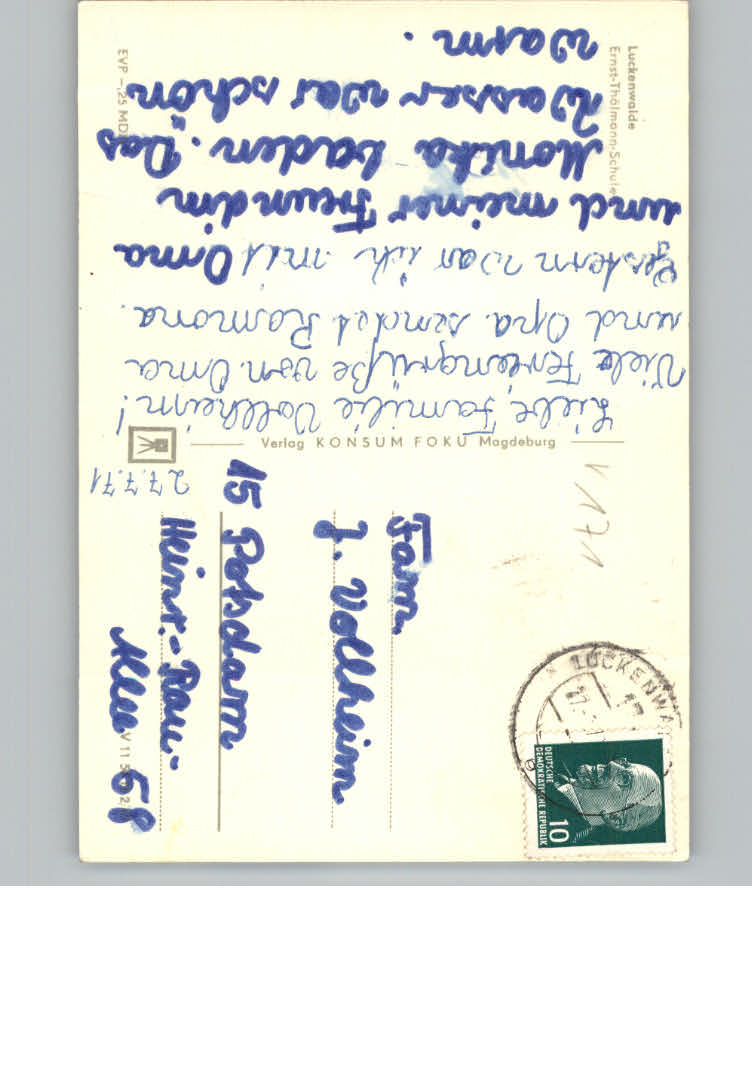 Luckenwalde
Ernst-Thälmann-Schule
27.7.71
Liebe Familie Vollheim!
Viele Feriengrüße von Oma
und Opa sendet Ramona.
Gestern war ich mit Oma
und meiner Freundin
Monika baden. Das
Wasser war schön
warm.
EVP –,25 MDN
Verlag KONSUM FOKU Magdeburg
V 11
V171
LUCKENWA
DEUTSCHE
DEMOKRATISCHE REPUBLIK
10
Fam.
J. Vollheim
15 Potsdam
Heinr.-Rau-
Allee 68